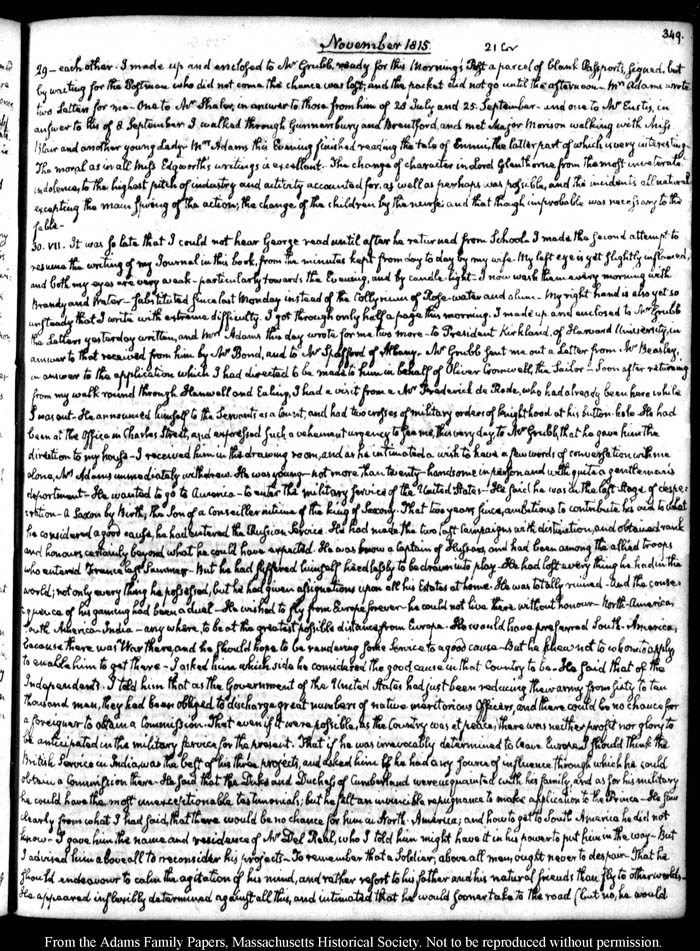 349.
November 1815. 21 Cor
29 — each other. I made up and enclosed to Mr Grubb, ready for this Morning's Post a parcel of blank Passports, signed, but
by writing for the Postman who did not come the chance was lost, and the packet did not go until the afternoon. Mrs Adams wrote
two Letters for me. One to Mr Shaler, in answer to those from him of 28 July and 25. September. and one to Mr Eustis, in
answer to his of 8 September. I walked through Gunnersbury and Brentford, and met Major Morison walking with Miss
Blair and another young Lady. Mrs Adams this Evening finished reading the tale of Ennui, the latter part of which is very interesting.
The moral as in all Miss Edgworth's writings is excellent. The change of character in Lord Glenthorne from the most inveterate
indolence, to the highest pitch of industry and activity accounted for, as well as perhaps was possible, and the incidents all natural
excepting the main Spring of the action, the change of the children by the nurse; and that though improbable was necessary to the
fable.
30. VII. It was so late that I could not hear George read until after he returned from School. I made the second attempt to
resume the writing of my Journal in this book, from the minutes kept from day to day by my wife. My left eye is yet slightly inflamed,
and both my eyes are very weak — particularly towards the Evening, and by candle-light. I now wash them every morning with
Brandy and Water — substituted since last Monday instead of the Collyrium of Rose-water and alum. My right hand is also yet so
unsteady that I write with extreme difficulty. I got through only half a page this morning. I made up and enclosed to Mr Grubb
the Letters yesterday written, and Mrs Adams this day wrote for me two more — to President Kirkland, of Harvard University, in
answer to that received from him by Mr Bond, and to Mr Spafford of Albany. Mr Grubb sent me out a Letter from Mr Beasley,
in answer to the application which I had directed to be made to him in behalf of Oliver Cromwell, the Sailor. Soon after returning
from my walk round through Hanwell and Ealing, I had a visit from a Mr Frederick de Rode, who had already been here while
I was out. He announced himself to the Servants as a Count, and had two crosses of military orders of knighthood at his button-hole. He had
been at the Office in Charles Street, and expressed such a vehement urgency to see me, this very day, to Mr Grubb, that he gave him the
direction to my house. I received him in the drawing room, and as he intimated a wish to have a few words of conversation with me
alone, Mrs Adams immediately withdrew. He was young — not more than twenty — handsome in person and with quite a gentleman's
deportment. He wanted to go to America — to enter the military service of the United States. He said he was in the last stage of despe-
ration — A Saxon by Birth, the Son of a Conseiller intime of the king of Saxony. That two years since, ambitious to contribute his aid to what
he considered a good cause, he had entered the Russian Service. He had made the two last Campaigns with distinction, and obtained rank
and honours certainly beyond what he could have expected. He was now a Captain of Hussars, and had been among the allied troops
who entered France last Summer. But he had suffered himself heedlessly to be drawn into play. He had lost every thing he had in the
world; not only every thing he possessed, but he had given assignations upon all his Estates at home. He was totally ruined. And the conse-
quence of his gaming had been a duel. He wished to fly from Europe forever — he could not live there without honour. North America,
South America — India — any where, to be at the greatest possible distance from Europe. He would have preferred South-America,
because there was War there, and he should hope to be rendering some Service to a good cause. But he knew not to whom to apply
to enable him to get there. I asked him which side he considered the good cause in that Country to be. He said that of the
Independents. I told him that as the Government of the United States had just been reducing their army from sixty to ten
thousand men, they had been obliged to discharge great numbers of native meritorious Officers, and there could be no chance for
a foreigner to obtain a Commission. That even if it were possible, as the Country was at peace, there was neither profit nor glory to
be anticipated in the military service for the present. That if he was irrevocably determined to leave Europe, I should think the
British Service in India, was the best of his three projects, and asked him if he had any source of influence through which he could
obtain a Commission there. He said that the Duke and Duchess of Cumberland were acquainted with his family, and as for his military
he could have the most unexceptionable testimonials; but he felt an invincible repugnance to make application to the Prince. He saw
clearly from what I had said, that there would be no chance for him in North-America; and how to get to South America he did not
know. I gave him the name and residence of Mr Del Real, who I told him might have it in his power to put him in the way. But
I advised him above all to reconsider his projects. To remember that a Soldier, above all men, ought never to despair. That he
should endeavour to calm the agitation of his mind, and rather resort to his father and his natural friends than fly to other worlds.
He appeared inflexibly determined against all this, and intimated that he would sooner take to the road (but no, he would
From the Adams Family Papers, Massachusetts Historical Society. Not to be reproduced without permission.